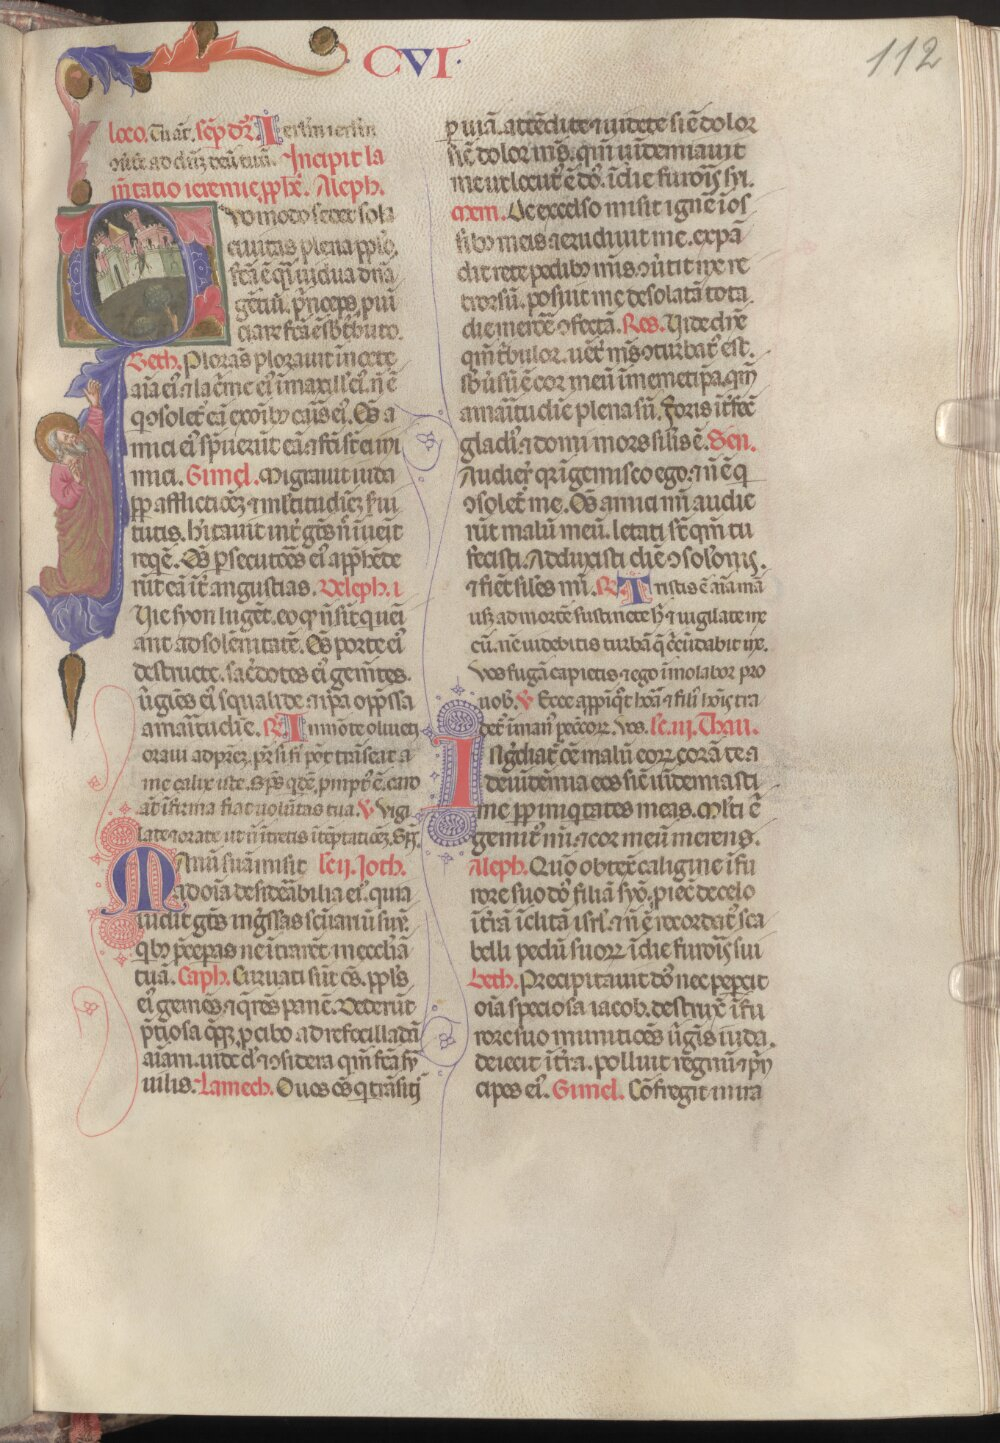 CVI.
112
loco. Cū at̄. sc̄p dr̄. Ierl̄m ierl̄m
ɔūte ad dn̄z deū tuū. Incipit la
m̄tatio ieremie ꝓph̄e. Aleph.
Quomodo sedet sola
ciuitas plena ppl̓o.
fc̄a ē q̄i uidua dn̄a
gētiū. p̄nceps ꝓui
ciar̄ fc̄a ē sb̄ t̓buto.
Beth. Plorās plorauit in nocte
7 lac̓me ei᷒ ī maxill̓ ei᷒. n̄ ē
q̓ ɔsolet̓ eā ex oīb᷒ caris ei᷒. Oēs a
mici ei᷒ sp̓uerūt eā 7 fc̄i st̄ ei ini
mici. Gimel. Migrauit iuda
ꝓp afflictiōez 7 m̄ltitudīez s̓ui
tutis. h̓itauit int̓ gētes n̄ iueīt
reqē. Oēs ꝑsecutores ei᷒ app̓hēde
rūt eā īt̓ angustias. Deleph. i
Uie syon lugēt. eo q̓ n̄ sit qui uēi
ant ad solēnitatē. Oēs porte ei᷒
destructe. sac̓dotes ei᷒ gemētes.
ūgies ei᷒ squalide 7 ip̄a opp̄ssa
amaritudīe. R̸ In mōte oliueti
oraui ad p̄rez. pr̄ si fi᷒i pōt trāseat a
me calix iste. Sp̄s q̓dē ꝓmpt᷒ ē. caro
aūt īfirma fiat uolūtas tua. V Vigi
late 7 orate ut n̄ ītretis ī tēptatiōez. Sp̄s.
Manū suā misit lc̄ ij. Joth.
ad oīa desid̓abilia ei᷒. quia
uidit gētes ing̓ssas sc̄uariū suū.
q̓b᷒ p̄ceperas ne ītrarēt in ecclīa
tuā. Caph. Curuati sūt
ei᷒ gemēs 7 q̓rēs panē. Dederūt
p̄tiosa q̄q; ꝓ cibo ad refocilladā
aīam. uide dn̄e 7 ɔsidera qm̄ fc̄a sū
uilis. Lamech. O uos oēs q̓ trāsitis
ꝑ uiā. attēdite 7 uidete si ē dolor
sic̄ dolor me᷒. qm̄ uīdemiauit
me ut locut᷒ ē dn̄s. ī die furoris sui.
Mem. De excelso misit ignē ī os
sib᷒ meis 7 erudiuit me. expā
dit rete pedib᷒ meis ɔūtit me re
trorsū. posuit me desolatā tota
die merōe ɔfectā. Res. Vide dn̄e
qm̄ t̓bulor. uēt̓ me᷒ ɔturbat᷒ est.
sb̓ūsū ē cor meū ī memetip̄a. qm̄
amaritudīe plena sū. Foris īt̓fic̓
gladi᷒ 7 domi mors sil̓is ē. Sen.
Audier̄t qr̄ īgemisco ego 7 n̄ ē q̓
ɔsolet̓ me. Oēs amici mei audie
rūt malū meū. letati st̄ qm̄ tu
fecisti. Adduxisti diē ɔsolōnis.
7 fiēt sil̓es mei. R̸ Tristis ē aīa mā
usq; ad mortē sustinete h̓ 7 uigilate mecū
cū. nūc uidebitis turbā q̓ c̓cūdabit me.
Vos fugā capietis 7 ego īmolabor pro
uob̓. V Ecce app̄īq̓t hora 7 fili᷒ hoīs tra
det̓ ī man᷒ pec̓cor̄. Vos. lc̄. iij. Thau.
Ingrediat᷒ oē malū eor̄ corā te
deuīdemia eos sic̄ uīdemiasti
me ꝓp iniq̓tates meas. m̄lti ē
gemit᷒ mei. 7 cor meū merens.
Aleph. Quō obtex̓ caligine ī fu
rore suo dn̄s filiā syō. ꝓiec̓ de celo
ī t̓rā īclitā isrl̓. 7 n̄ ē recordat᷒ sca
belli pedū suor̄ ī die furoris sui
Beth. Precipitauit dn̄s nec pepcit
oīa speciosa iacob. destrux̓ ī fu
rore suo munitiōes ūgīs iuda.
deiecit ī t̓ra. polluit regnū 7 p̓n
cipes ei᷒. Gimel. Cōfregit in ira